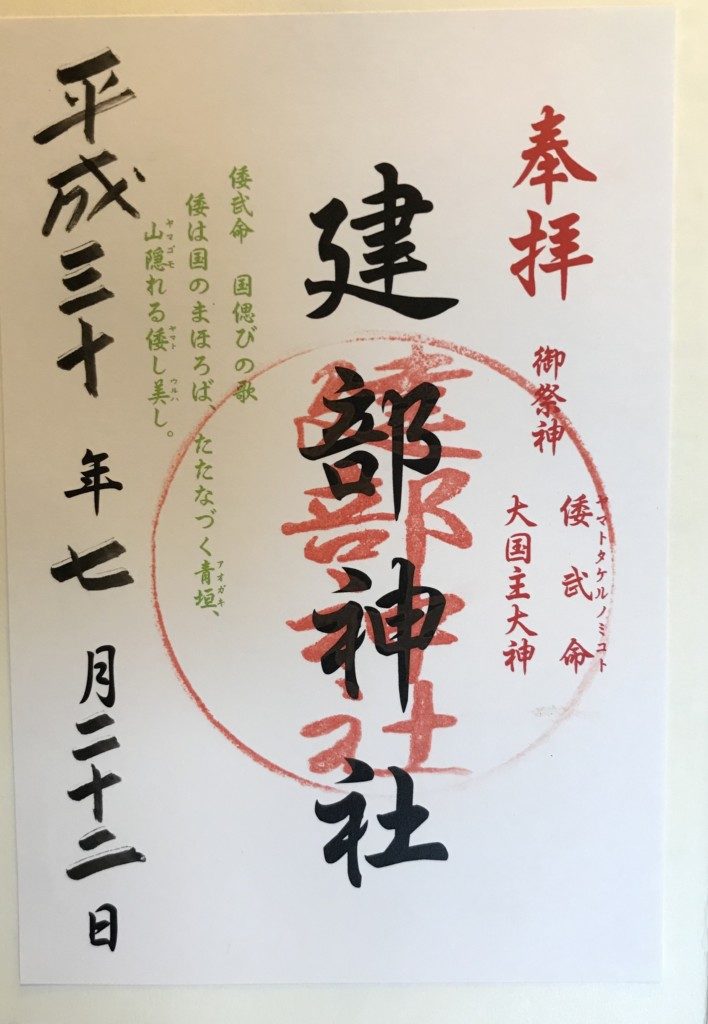 奉拝
御祭神
倭武命
ヤマトタケルノミコト
大国主大神
建部神社
建部神社
倭武命 国偲びの歌
倭は国のまほろば、たたなづく青垣、
アオガキ
山隠れる倭し美し。
ヤマゴモ ヤマト ウルハ
平成三十年七月二十二日